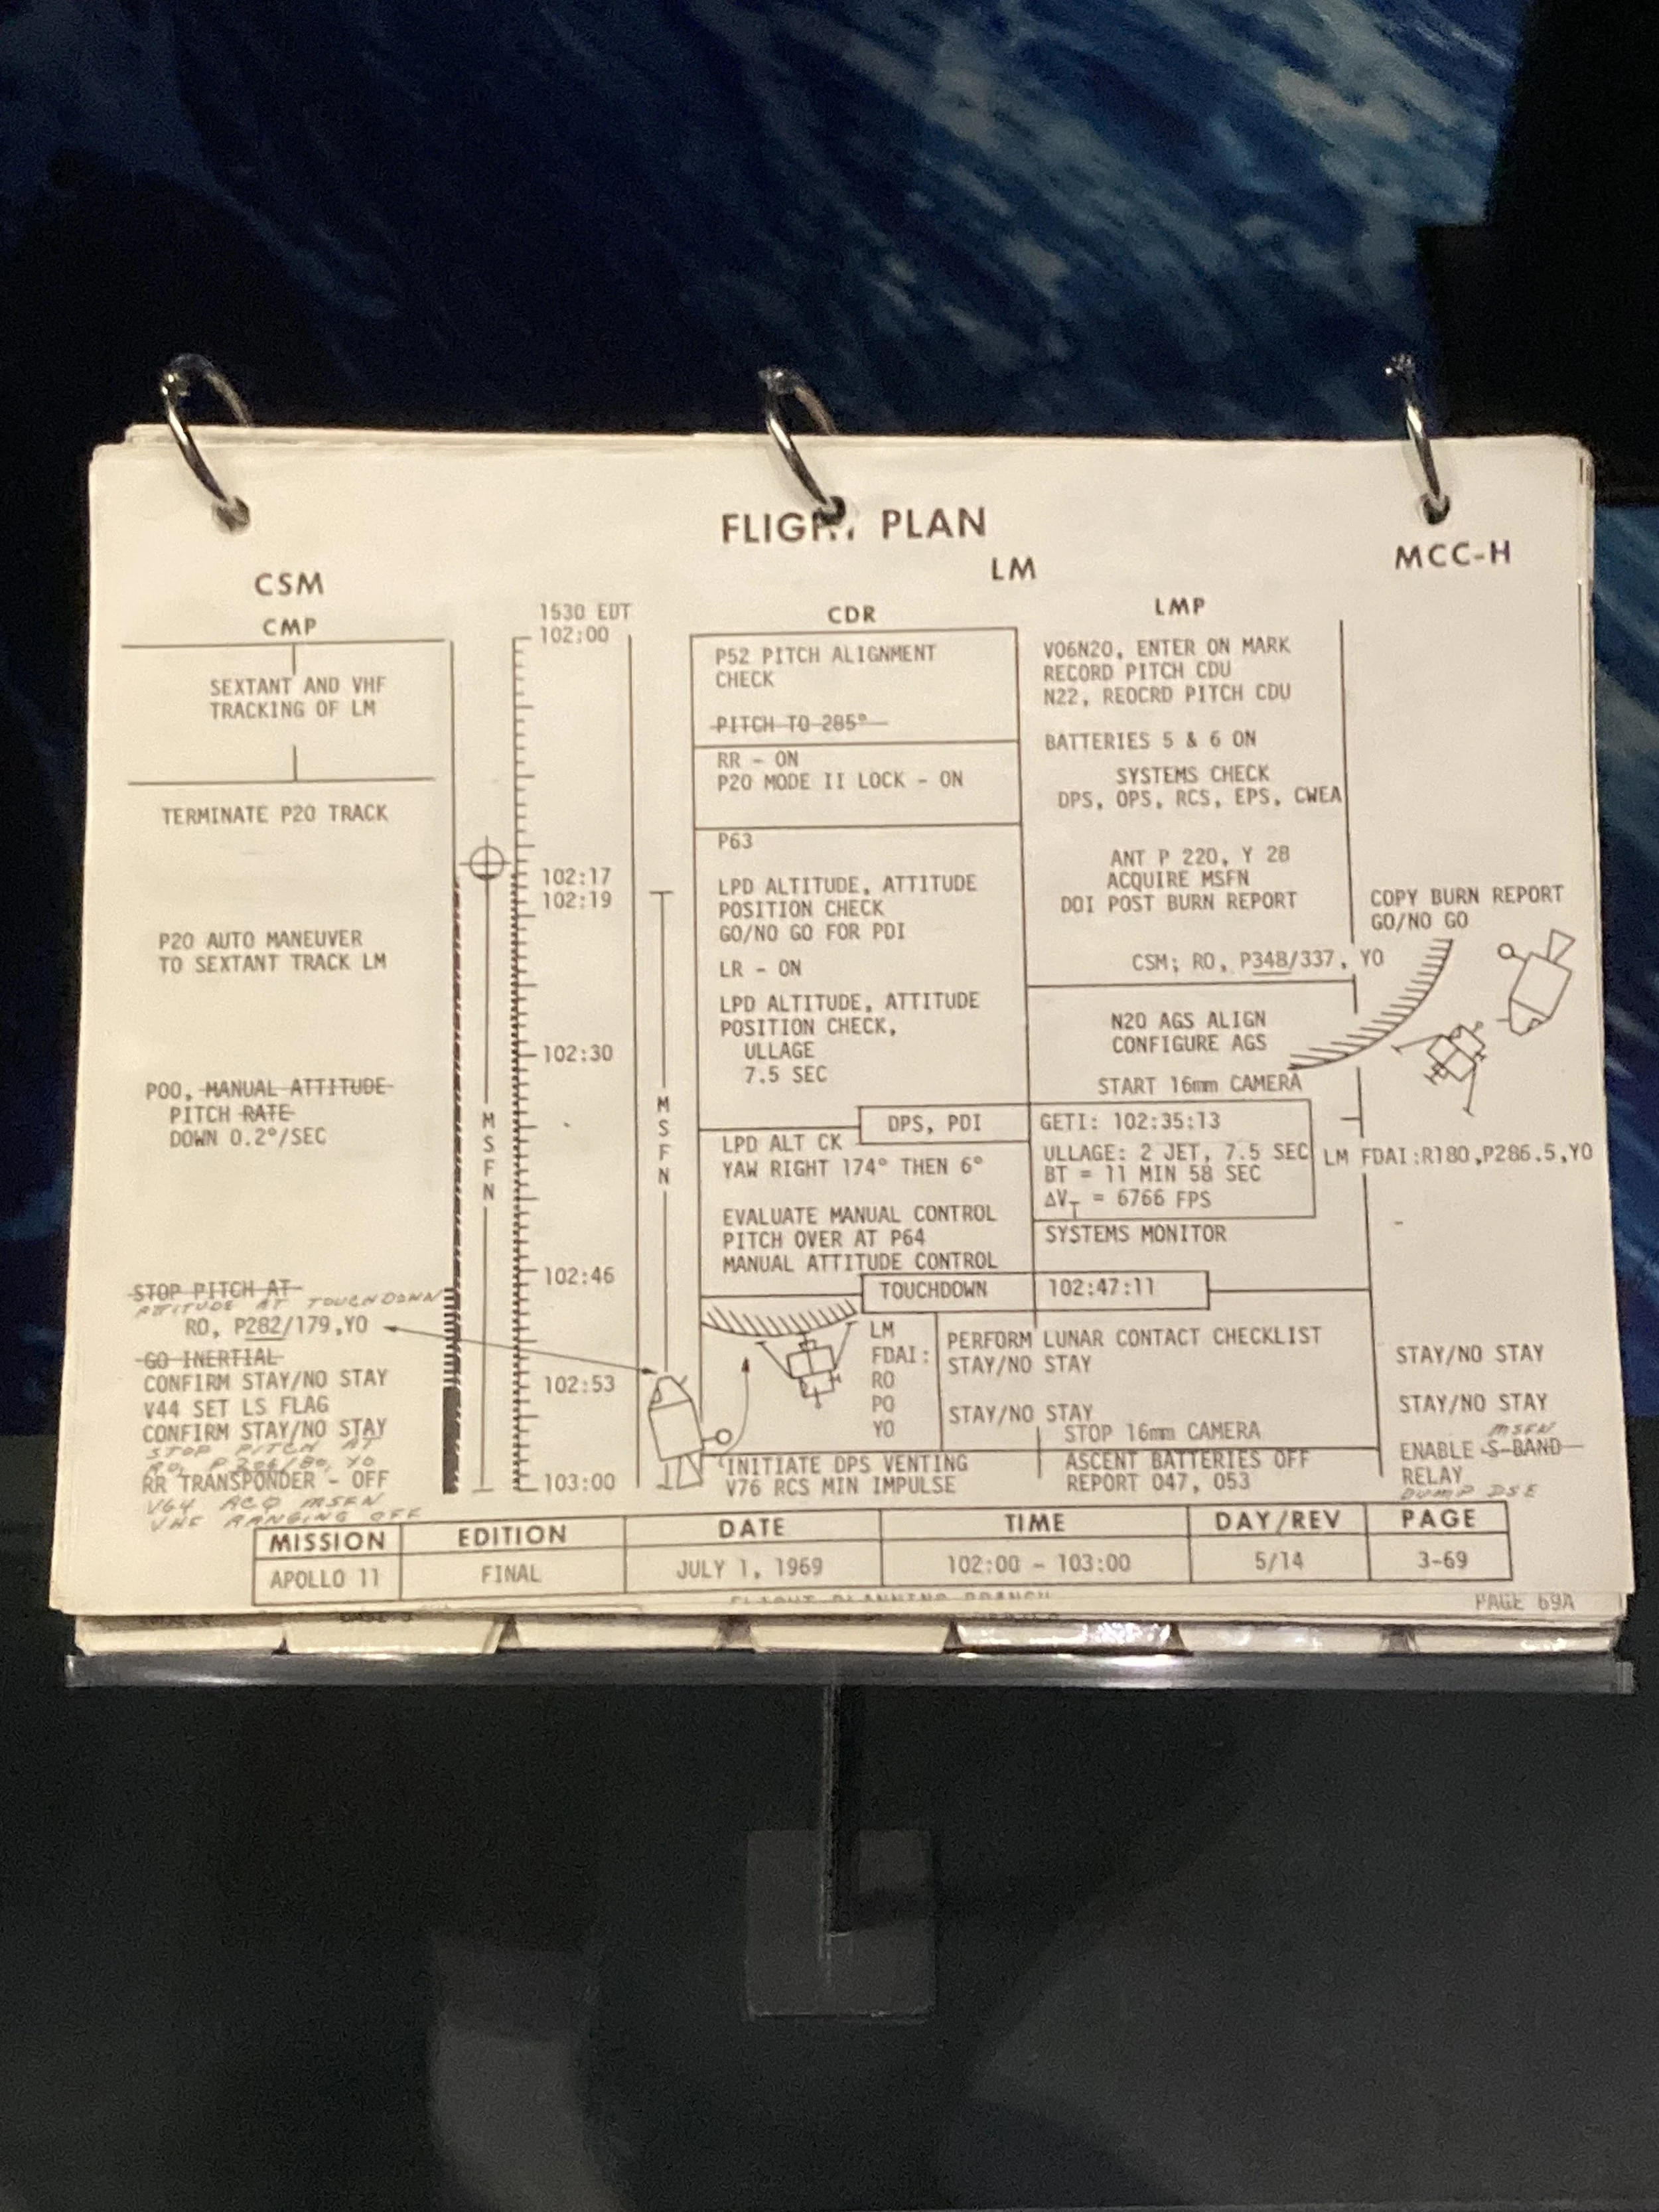 FLIGHT PLAN
CSM
LM
MCC-H
CMP
SEXTANT AND VHF
TRACKING OF LM
TERMINATE P20 TRACK
P20 AUTO MANEUVER
TO SEXTANT TRACK LM
P00, MANUAL ATTITUDE
PITCH RATE
DOWN 0.2°/SEC
STOP PITCH AT
ATTITUDE AT TOUCHDOWN
R0, P282/179,Y0
GO INERTIAL
CONFIRM STAY/NO STAY
V44 SET LS FLAG
CONFIRM STAY/NO STAY
STOP PITCH AT
RR TRANSPONDER - OFF
V64 ACQ MSFN
VHF RANGING OFF
1530 EDT
102:00
102:17
102:19
102:30
102:46
102:53
103:00
MSFN
MSFN
CDR
P52 PITCH ALIGNMENT
CHECK
PITCH TO 285°
RR - ON
P20 MODE II LOCK - ON
P63
LPD ALTITUDE, ATTITUDE
POSITION CHECK
GO/NO GO FOR PDI
LR - ON
LPD ALTITUDE, ATTITUDE
POSITION CHECK,
ULLAGE
7.5 SEC
DPS, PDI
LPD ALT CK
YAW RIGHT 174° THEN 6°
EVALUATE MANUAL CONTROL
PITCH OVER AT P64
MANUAL ATTITUDE CONTROL
TOUCHDOWN
LM
FDAI:
R0
P0
Y0
INITIATE DPS VENTING
V76 RCS MIN IMPULSE
LMP
V06N20, ENTER ON MARK
RECORD PITCH CDU
N22, REOCRD PITCH CDU
BATTERIES 5 & 6 ON
SYSTEMS CHECK
DPS, OPS, RCS, EPS, CWEA
ANT P 220, Y 28
ACQUIRE MSFN
DOI POST BURN REPORT
CSM; R0, P348/337, Y0
N20 AGS ALIGN
CONFIGURE AGS
START 16mm CAMERA
GETI: 102:35:13
ULLAGE: 2 JET, 7.5 SEC
BT = 11 MIN 58 SEC
ΔVT = 6766 FPS
SYSTEMS MONITOR
102:47:11
PERFORM LUNAR CONTACT CHECKLIST
STAY/NO STAY
STAY/NO STAY
STOP 16mm CAMERA
ASCENT BATTERIES OFF
REPORT 047, 053
COPY BURN REPORT
GO/NO GO
LM FDAI:R180,P286.5,Y0
STAY/NO STAY
STAY/NO STAY
MSFN
ENABLE S-BAND
RELAY
DUMP DSE
MISSION EDITION DATE TIME DAY/REV PAGE
APOLLO 11 FINAL JULY 1, 1969 102:00 - 103:00 5/14 3-69
FLIGHT PLANNING BRANCH
PAGE 69A